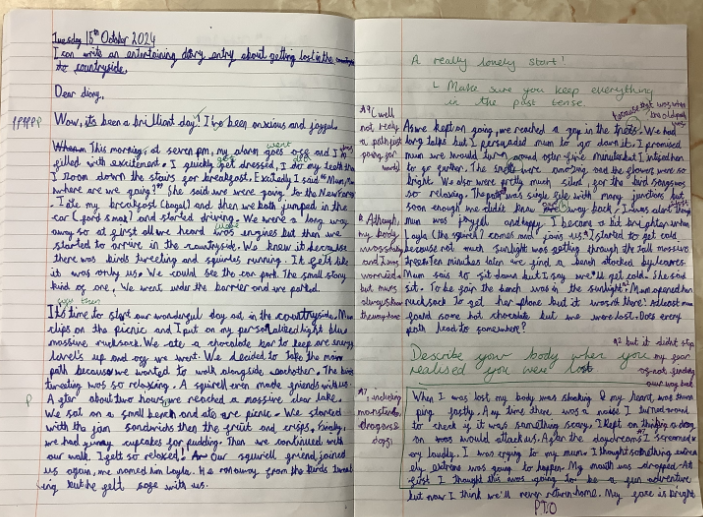 Tuesday 15th October 2024
I can write an entertaining diary entry about getting lost in the
countryside.
Dear diary,
Wow, its been a brilliant day! I've been anxious and joyful.
This morning, at seven pm, my alarm goes off and I'm
went
filled with excitement. I quickly get dressed, I do my teeth
I zoom down the stairs for breakfast. Excitedly I said "Mum,
where are we going?" She said we were going to the
I ate my breakfast (bagel) and then we both jumped in the
car (ford smax) and started driving. We were a long way
away so at first all we heard was engines but then we
started to arrive in the countryside. We knew it because
there was birds tweeting and squirles running. It felt like
it was only us. We could see the car park. The small
kind of one. We went under the barrier and we parked.
It's time to start our wonderful day out in the countryside. Mum
clips on the picnic and I put on my personalised light blue
massive rucksack. We ate a chocolate bar to keep are energy
level's up and off we went. We decided to take the main
path because we wanted to walk alongside eachother. The birds
tweeting was so relaxing. A squirell even made friends with us.
After about two hours, we reached a massive clear lake.
We sat on a small bench and ate are picnic. We started
with the jam sandwiches then the fruit and crisps. Finally,
we had yummy cupcakes for pudding. Then we continued with
our walk. I felt so relaxed! Our squirell friend joined
us again, we named him Layla. He ran away from the birds tweet
ing but he felt safe with us.
P
A really lonely start!
Make sure you keep everything
in the past tense.
well
not really
a path just
going for
As we kept on going, we reached a gap in the trees. We had
long talks but I persuaded mum to go down it. I promised
mum we would turn around after five minutes but I wished
to go further. The smells were amazing and the flowers were so
bright. We also were pretty much silent, for the bird song was
so relaxing. The path was single file with many junctions but
soon enough we didn't know away back. I was
mum was joyful and happy. I became a bit brighter when
Layla (the squirell) comes and joins us. I started to get cold
because not much sunlight was getting through the tall massive
trees. Ten minutes later we find a bench attacked by leaves.
Mum said to sit down but I say we'll get cold. She said
sit. To be fair the bench was in the sunlight. Mum opened her
rucksack to get her phone but it wasn't there! At least mum
found some hot chocolate but we were lost. Does every
path lead to somewhere?
Although,
my body
was shaky
and I was
worried
but mum
always has
Describe your body when you
realised you were lost
but it didnt stop
my fear
of not finding
our way back
including
monsters
dragons &
dogs
When I was lost my body was shaking & my heart, was thum
ping fastly. Any time there was a noise I turned around
to check if it was something scary. I kept on thinking a drag
on was would attack us. After the daydreams I screamed
ery loudly. I was crying to my mum. I thought something extrem
ely extreme was going to happen. My mouth was dropped. At
first I thought this was going to be a fun adventure
but now I think we'll never return home. My face is bright
PTO